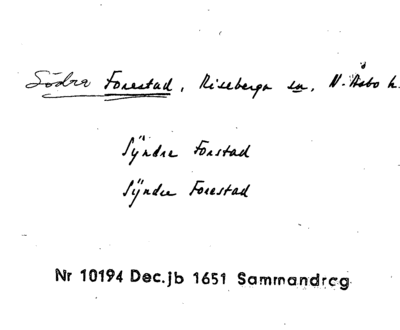 Södra Forestad, Riseberga sn, N. Åsbo h.
Sÿndre Forstad
Sÿndre Forestad
Nr 10194 Dec.jb 1651 Sammandrag